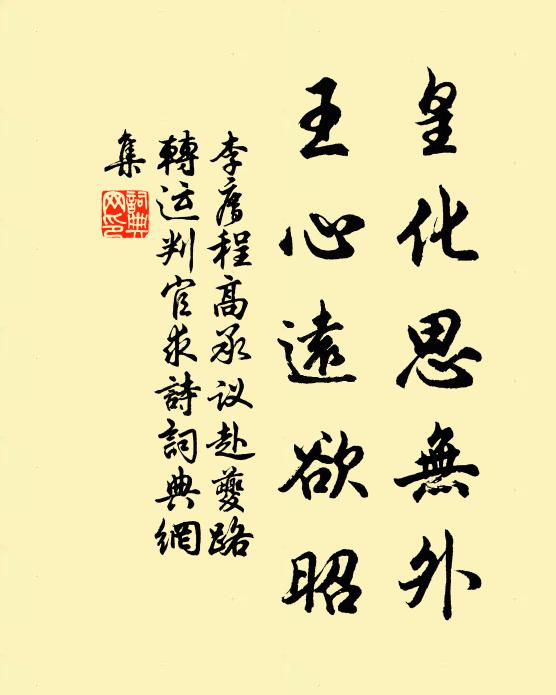 皇化思無外
王心遠欲昭
李廌程高承议赴夔路
轉运判官求詩詞典網
集
詞典網印